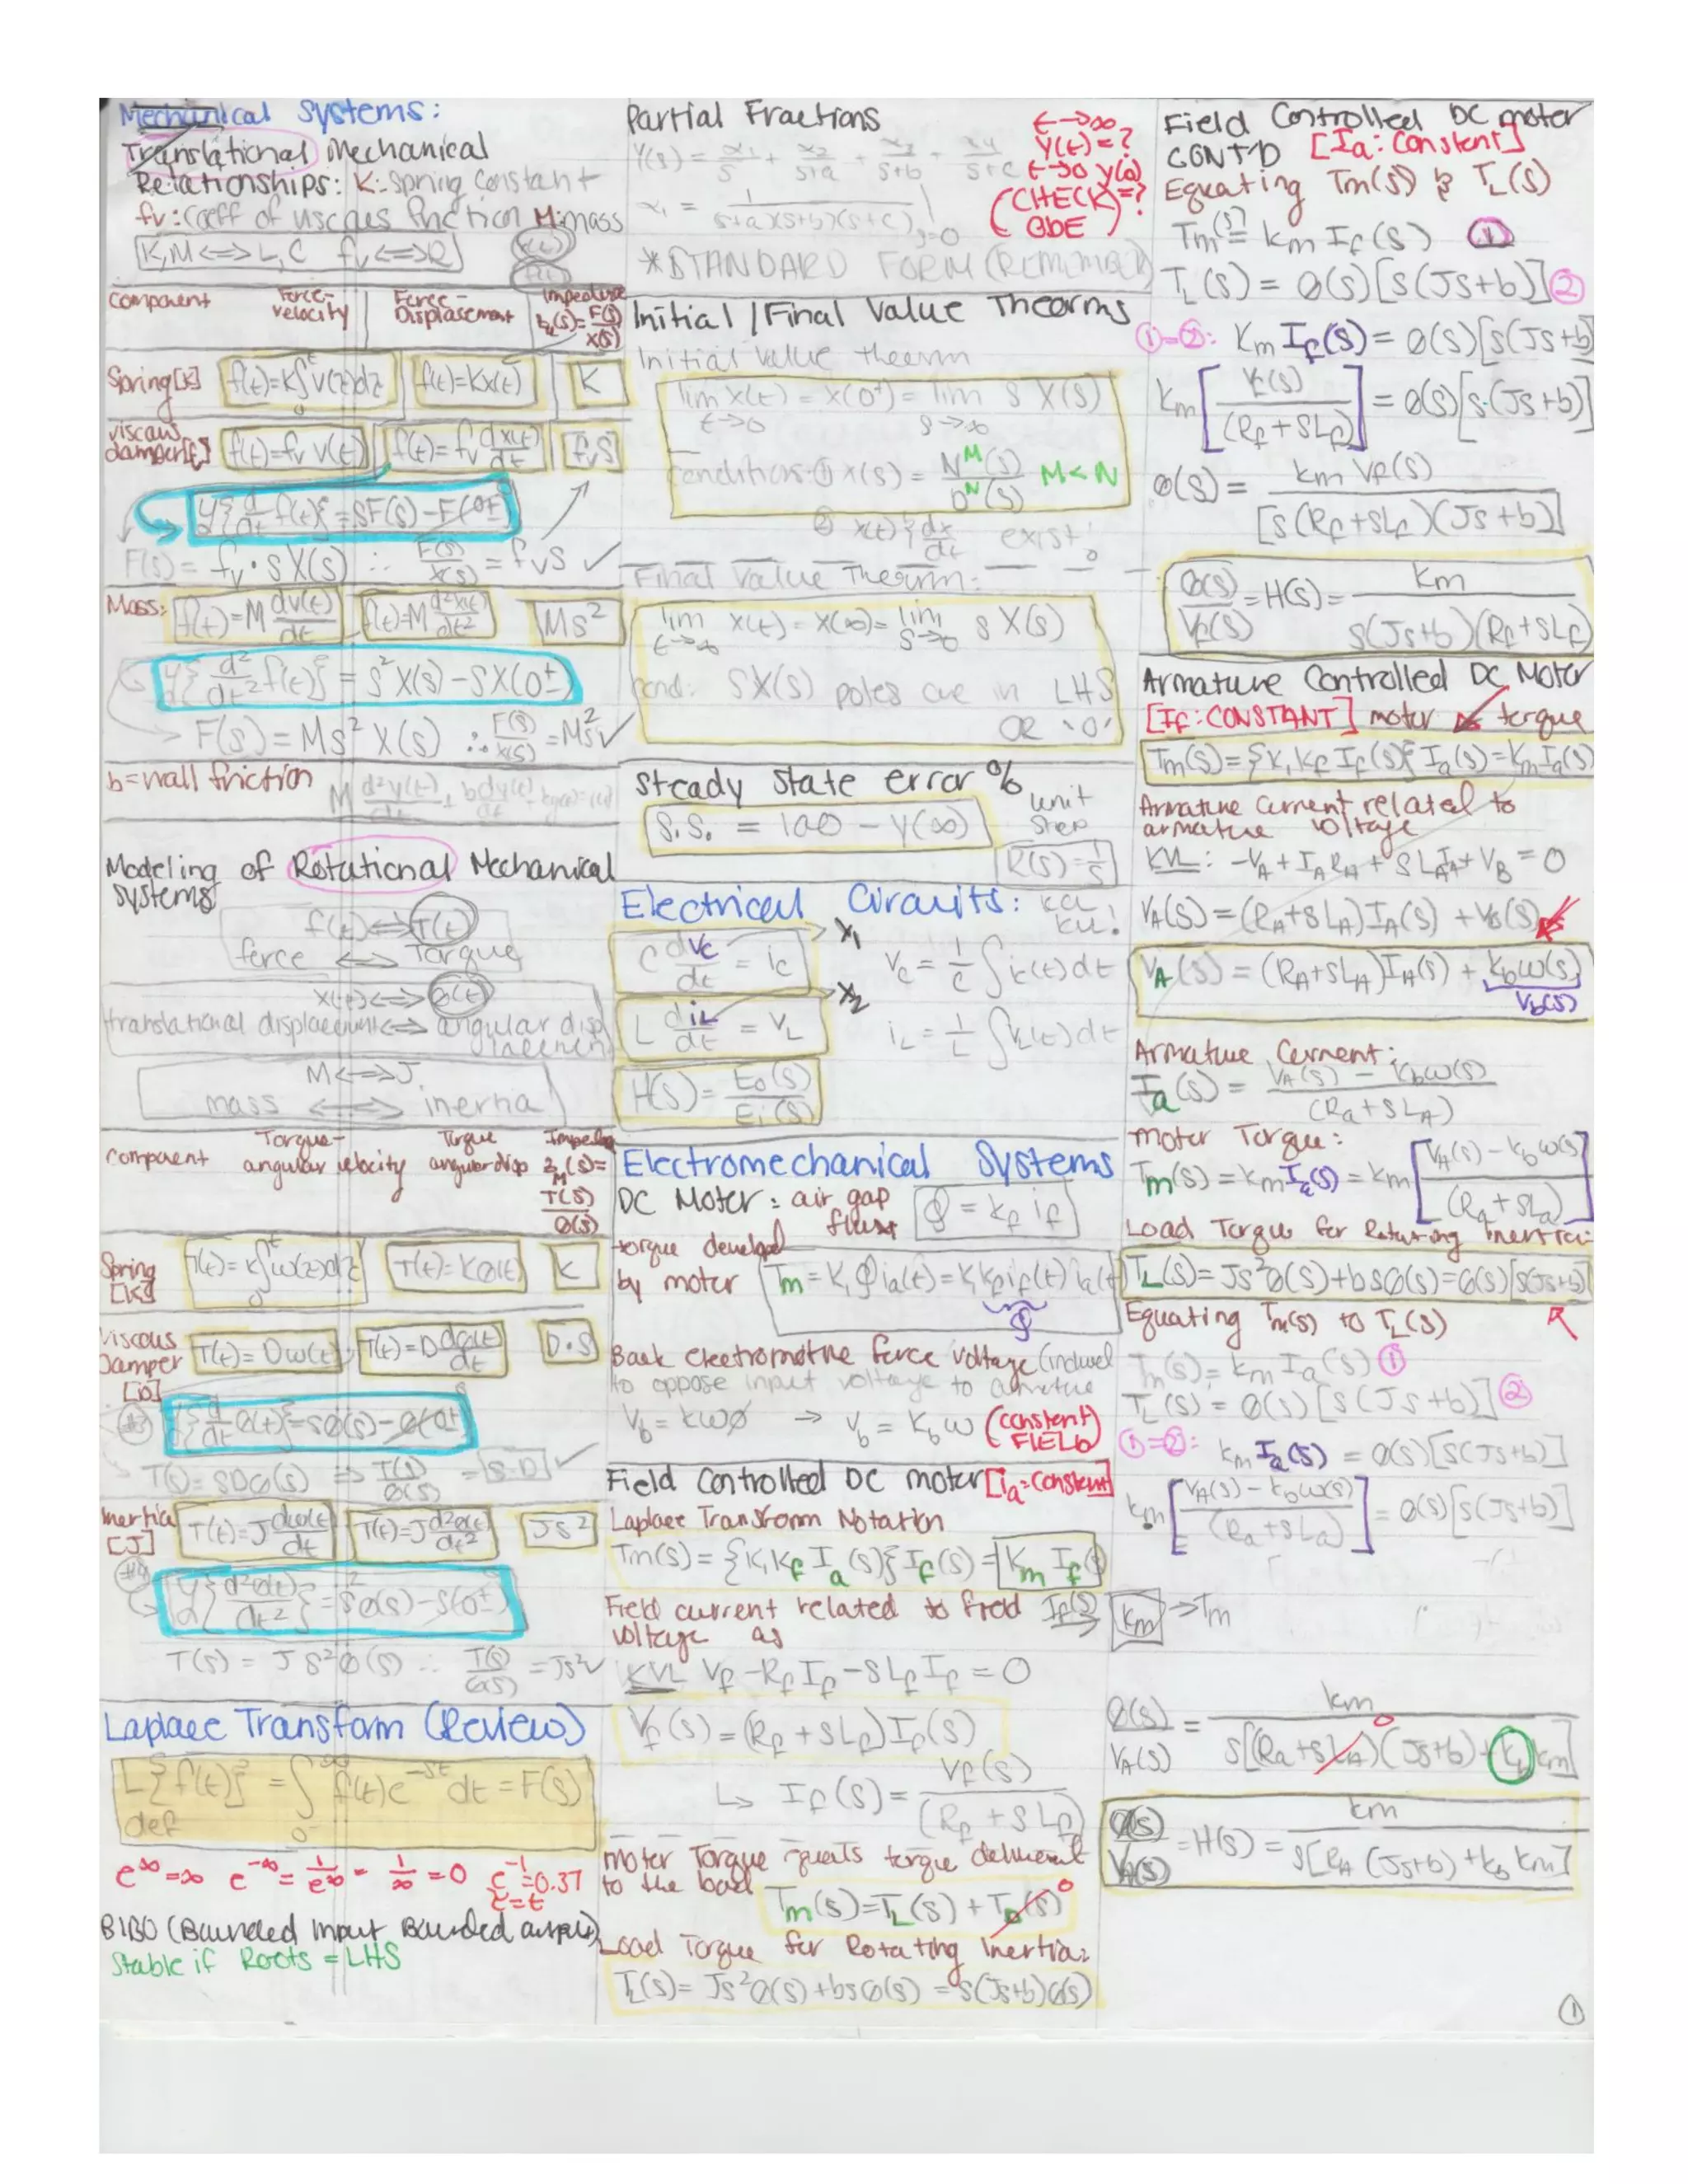 Mechanical Systems:
Translational Mechanical
Relationships: K: Spring Constant
fv: Coeff of viscous friction M: mass
K, M <=> L, C fv <=> R
Component Force-velocity Force-Displacement Impedance Zm(s) = F(s)/X(s)
Spring [K] f(t) = K∫₀ᵗ v(τ)dτ f(t) = Kx(t) K
viscous damper [f] f(t) = fv v(t) f(t) = fv dx(t)/dt fvS
ℒ{d/dt f(t)} = SF(s) - F(0±)
F(s) = fv · S X(s) ∴ F(s)/X(s) = fvS ✓
Mass: f(t) = M dv(t)/dt f(t) = M d²x(t)/dt² Ms²
ℒ{d²/dt² f(t)} = S²X(s) - SX(0±)
F(s) = Ms² X(s) ∴ F(s)/X(s) = Ms² ✓
b = wall friction M d²y(t)/dt² + b dy(t)/dt
Modeling of Rotational Mechanical
Systems
f(t) <=> T(t)
force <=> Torque
x(t) <=> Ø(t)
translational displacement <=> angular displacement
M <=> J
mass <=> inertia
Component Torque-angular velocity Torque angular disp Impedance Zm(s) = T(s)/Ø(s)
Spring [K] T(t) = K∫₀ᵗ ω(τ)dτ T(t) = KØ(t) K
Viscous Damper [D] T(t) = Dω(t) T(t) = D dØ(t)/dt D·S
ℒ{d/dt Ø(t)} = SØ(s) - Ø(0±)
T(s) = SDØ(s) => T(s)/Ø(s) = S·D ✓
Inertia [J] T(t) = J dω(t)/dt T(t) = J d²Ø(t)/dt² Js²
ℒ{d²Ø(t)/dt²} = S²Ø(s) - S(0±)
T(s) = J S²Ø(s) ∴ T(s)/Ø(s) = Js² ✓
Laplace Transform (Review)
L{f(t)} = ∫₀^∞ f(t)e^-st dt = F(s)
def
e^∞ = ∞ e^-∞ = 1/e^∞ = 1/∞ = 0 e^-1 = 0.37
τ = t
BIBO (Bounded Input Bounded output)
Stable if Roots = LHS
Partial Fractions
Y(s) = α1/s + α2/s+a + α3/s+b + α4/s+c
α1 = 1/(s+a)(s+b)(s+c) | s=0
t→∞
Y(t) = ?
t→0 y(0) = ?
(CHECK QbE)
*STANDARD FORM (REMEMBER)
Initial / Final Value Theorms
Initial value theorm
lim t→0 x(t) = x(0⁺) = lim s→∞ S X(s)
condition: ① X(s) = N^M(s)/D^N(s) M < N
② x(t) & dx/dt exist!
Final Value Theorm:
lim t→∞ x(t) = x(∞) = lim s→0 S X(s)
cond: SX(s) poles are in LHS
OR '0'
Steady State error %
S.S. = 100 - y(∞)
unit step
R(s) = 1/s
Electrical Circuits: KCL KVL!
C dvc/dt = ic → x1 Vc = 1/C ∫ ic(t)dt
L diL/dt = VL → x2 iL = 1/L ∫ VL(t)dt
H(s) = Eo(s)/Ei(s)
Electromechanical Systems
DC Motor: air gap flux Φ = kf if
torque developed
by motor Tm = K1 Φ ia(t) = K1 kf if(t) ia(t)
Φ
Back electromotive force voltage (induced
to oppose input voltage to armature
Vb = kωØ → Vb = Kbω (constant FIELD)
Field Controlled DC motor [ia = constant]
Laplace Transform Notation
Tm(s) = {K1 Kf Ia(s)} If(s) = Km If(s)
Field current related to field voltage as
If(s) → km → Tm
KVL Vf - RfIf - SLfIf = 0
Vf(s) = (Rf + SLf)If(s)
↳ If(s) = Vf(s)/(Rf + SLf)
Motor Torque equals torque delivered
to the load
Tm(s) = TL(s) + TD(s) 0
Load Torque for Rotating Inertia:
TL(s) = Js²Ø(s) + bsØ(s) = s(Js+b)Ø(s)
Field Controlled DC motor
CONT'D [Ia: Constant]
Equating Tm(s) & TL(s)
Tm(s) = km If(s) ①
TL(s) = Ø(s)[s(Js+b)] ②
①=②: Km If(s) = Ø(s)[s(Js+b)]
Km [Vf(s)/(Rf + SLf)] = Ø(s)[s·(Js+b)]
Ø(s) = km Vf(s)/[s(Rf+SLf)(Js+b)]
Ø(s)/Vf(s) = H(s) = km/s(Js+b)(Rf+SLf)
Armature Controlled DC Motor
[If: CONSTANT] motor torque
Tm(s) = {K1 Kf If(s)} Ia(s) = Km Ia(s)
Armature current related to
armature voltage
KVL: -VA + IARA + SLAIA + VB = 0
VA(s) = (RA+SLA)IA(s) + Vb(s)
VA(s) = (RA+SLA)IA(s) + kbω(s)
Vb(s)
Armature Current:
Ia(s) = VA(s) - kbω(s)/(Ra+SLA)
Motor Torque:
Tm(s) = km Ia(s) = km [VA(s) - kbω(s)/(Ra + SLa)]
Load Torque for Rotating Inertia:
TL(s) = Js²Ø(s) + bsØ(s) = Ø(s)[s(Js+b)]
Equating Tm(s) to TL(s)
Tm(s) = km Ia(s) ①
TL(s) = Ø(s)[s(Js+b)] ②
①=②: km Ia(s) = Ø(s)[s(Js+b)]
km [VA(s) - kbω(s)/(Ra + SLa)] = Ø(s)[s(Js+b)]
Ø(s)/VA(s) = km/s[(Ra+SLA)(Js+b) + kb km] 0
Ø(s)/VA(s) = H(s) = km/s[RA(Js+b) + kb km]
①